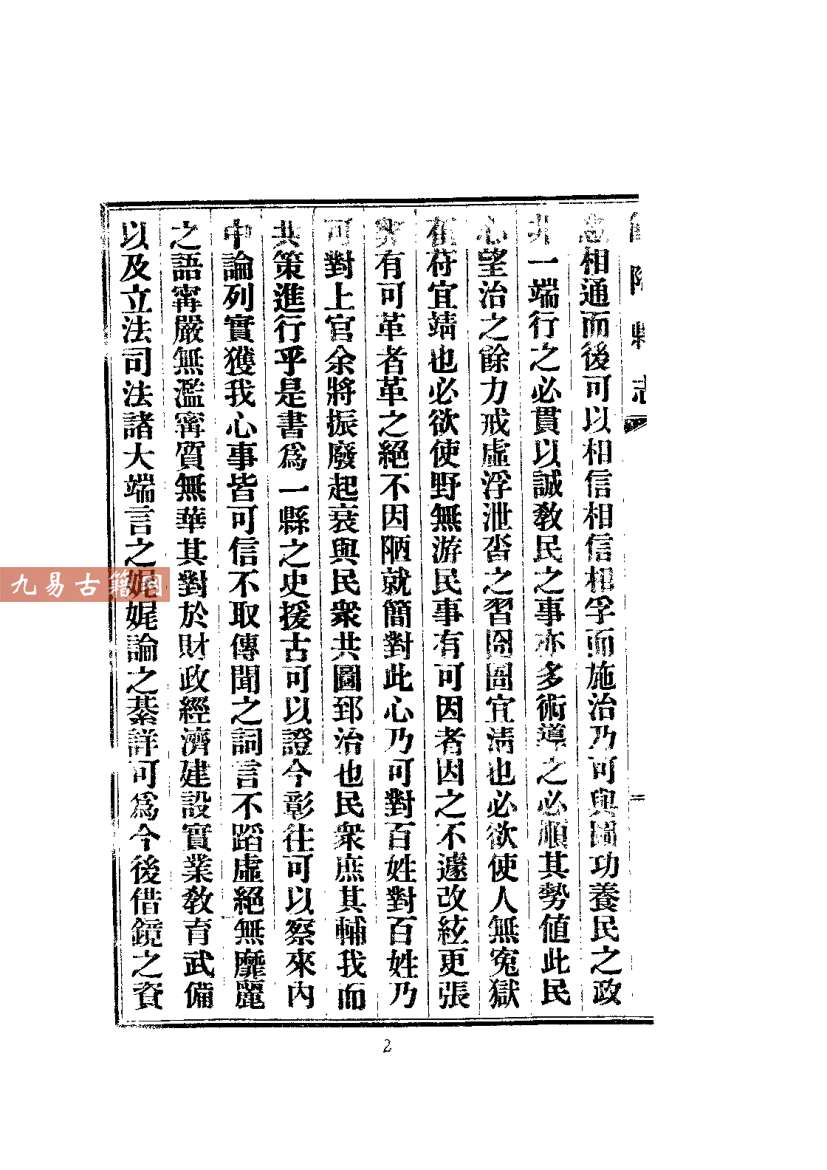 陽縣志
一
相通而後可以相信相信相孚而施治乃可與圖功養民之政
非一端行之必貫以誠教民之事亦多術導之必順其勢值此民
心望治之餘力戒虛浮泄沓之習囹圄宜淸也必欲使人無冤獄
萑苻宜靖也必欲使野無游民事有可因者因之不遽改絃更張
弊有可革者革之絕不因陋就簡對此心乃可對百姓對百姓乃
可對上官余將振廢起衰與民衆共圖郅治也民衆庶其輔我而
共策進行乎是書爲一縣之史援古可以證今彰往可以察來內
中論列實獲我心事皆可信不取傳聞之詞言不蹈虛絕無靡麗
之語甯嚴無濫甯質無華其對於財政經濟建設實業敎育武備
以及立法司法諸大端言之娓娓論之綦詳可爲今後借鏡之資
九易古籍网
2